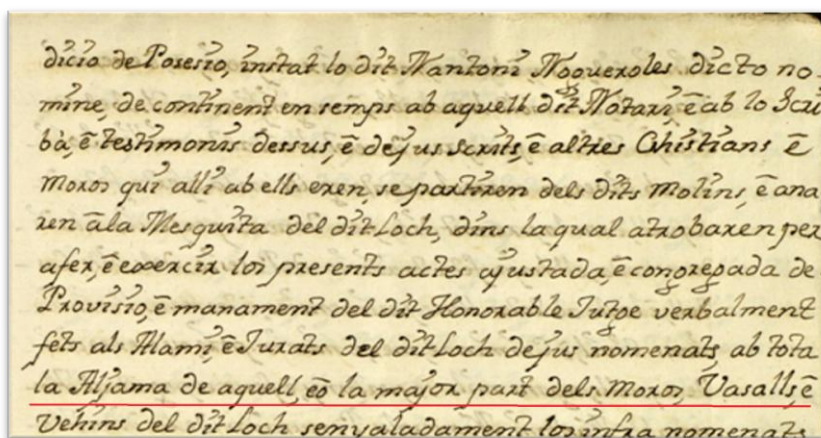 dicio de Posesio, instat lo dit Nantoni Nogueroles dicto no
mine, de continent en semps ab aquell dit Notari, ē ab lo Scri
bà, ē testimonis dessus, ē dejus scrits, ē altres Christians ē
Moros qui alli ab ells eren, se partiren dels dits Molins, ē ana
ren āla Mesquita del dit Loch, dins la qual atrobaren per
afer, ē exercir los presents actes ajustada, ē congregada de
Provisio, ē manament del dit Honorable Jutge verbalment
fets als Alami, ē Jurats del dit Loch dejus nomenats, ab tota
la Aljama de aquell, ēo la major part dels Moros, Vasalls, ē
Vehins del dit Loch senyaladament los infra nomenats